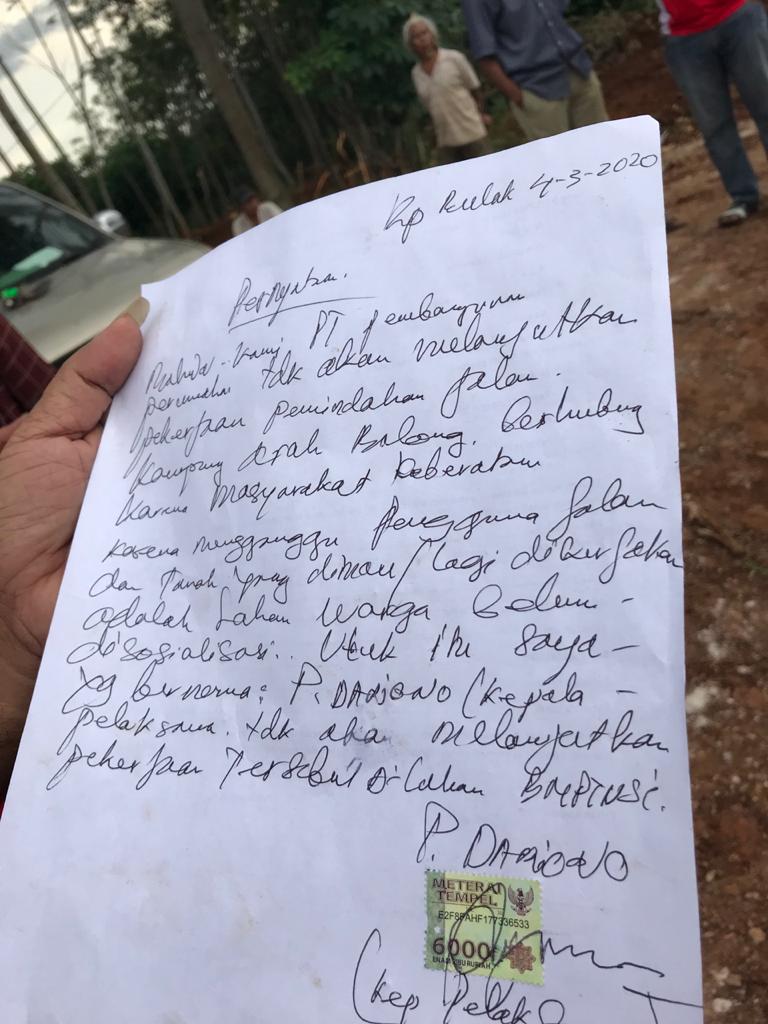 Kp Bulak 4-3-2020
Pernyataan.
Bahwa. Kami PT pembangunan
perumahan tdk akan melanjutkan
pekerjaan pemindahan jalan.
Kampung arah Balong. berhubung
karena Masyarakat keberatan
karena mengganggu Pengguna jalan
dan Tanah yang dimau / lagi dikerjakan
adalah Lahan warga belum -
disosialisasi.. Utuk itu saya -
yg bernama: P. DARiONO (kepala -
pelaksana. tdk akan melanjutkan
pekerjaan Tersebut Di Lahan
P. DARiONO
METERAI
TEMPEL
6000
ENAM RIBU RUPIAH
(kep Pelaks